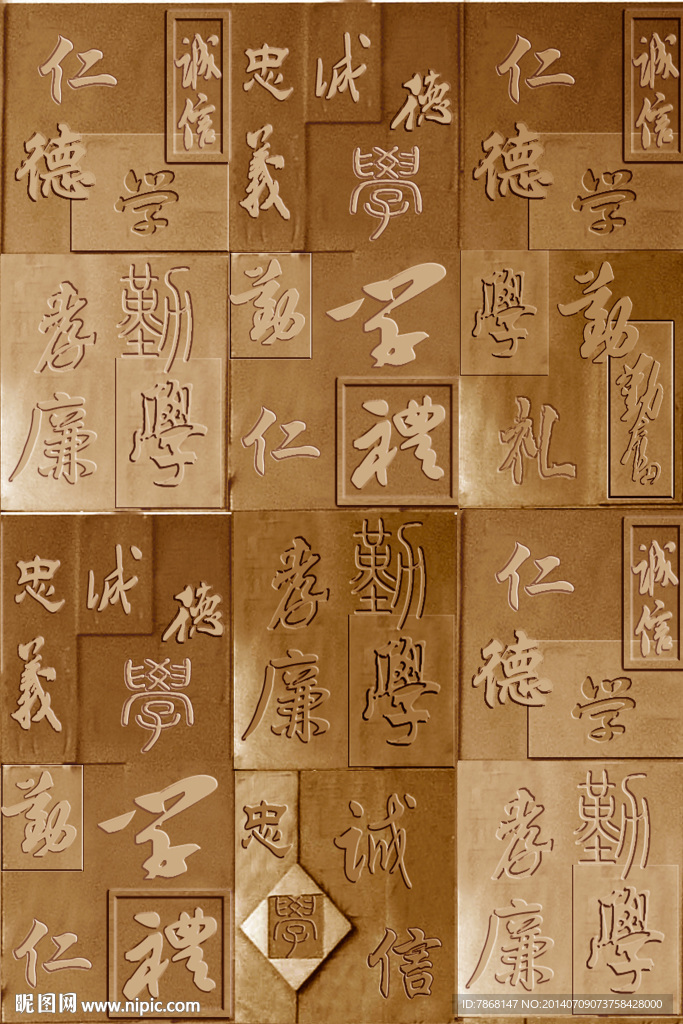 仁
诚信
德
学
忠
诚
德
義
學
仁
诚信
德
学
勤
廉
學
勤
学
仁
禮
學
勤
礼
勤奮
忠
诚
德
義
學
勤
廉
學
仁
诚信
德
学
勤
学
仁
禮
忠
诚
學
信
勤
廉
學
昵图网 www.nipic.com
ID:7868147 NO:20140709073758428000